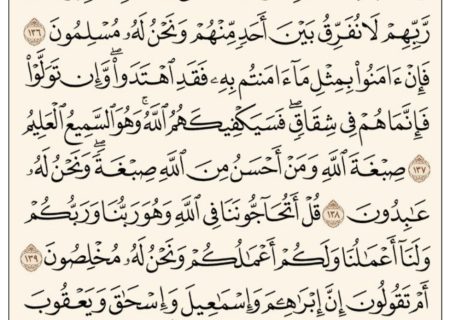 رَّبِّهِمْ لَا نُفَرِّقُ بَيْنَ أَحَدٍ مِّنْهُمْ وَنَحْنُ لَهُۥ مُسْلِمُونَ ١٣٦
فَإِنْ ءَامَنُوا۟ بِمِثْلِ مَآ ءَامَنتُم بِهِۦ فَقَدِ ٱهْتَدَوا۟ۖ وَّإِن تَوَلَّوْا۟
فَإِنَّمَا هُمْ فِى شِقَاقٍۖ فَسَيَكْفِيكَهُمُ ٱللَّهُۚ وَهُوَ ٱلسَّمِيعُ ٱلْعَلِيمُ
١٣٧ صِبْغَةَ ٱللَّهِ وَمَنْ أَحْسَنُ مِنَ ٱللَّهِ صِبْغَةًۖ وَنَحْنُ لَهُۥ
عَـٰبِدُونَ ١٣٨ قُلْ أَتُحَآجُّونَنَا فِى ٱللَّهِ وَهُوَ رَبُّنَا وَرَبُّكُمْ
وَلَنَآ أَعْمَـٰلُنَا وَلَكُمْ أَعْمَـٰلُكُمْ وَنَحْنُ لَهُۥ مُخْلِصُونَ ١٣٩
أَمْ تَقُولُونَ إِنَّ إِبْرَٰهِـۧمَ وَإِسْمَـٰعِيلَ وَإِسْحَـٰقَ وَيَعْقُوبَ